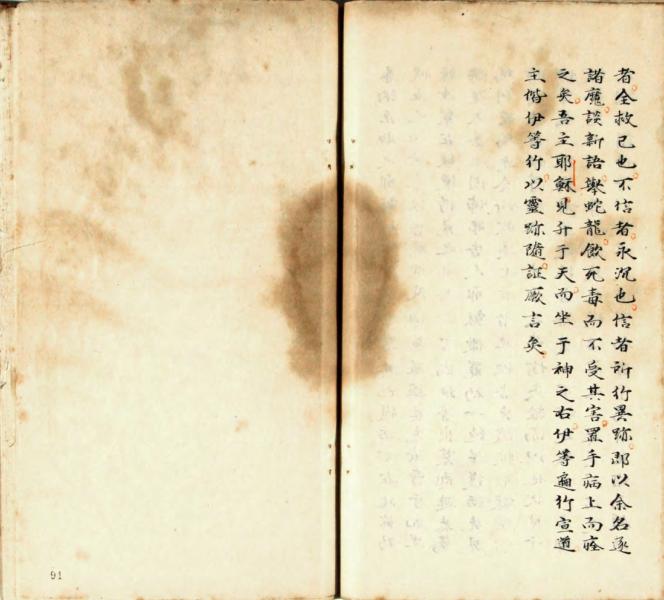 者全救已也不信者永沉也信者所行異跡即以余名逐
諸魔談新語舉蛇龍飲死毒而不受其害置手病上而痊
之矣吾主耶穌見升于天而坐于神之右伊等遍行宣道
主偕伊等行以靈跡隨証厥言矣
91